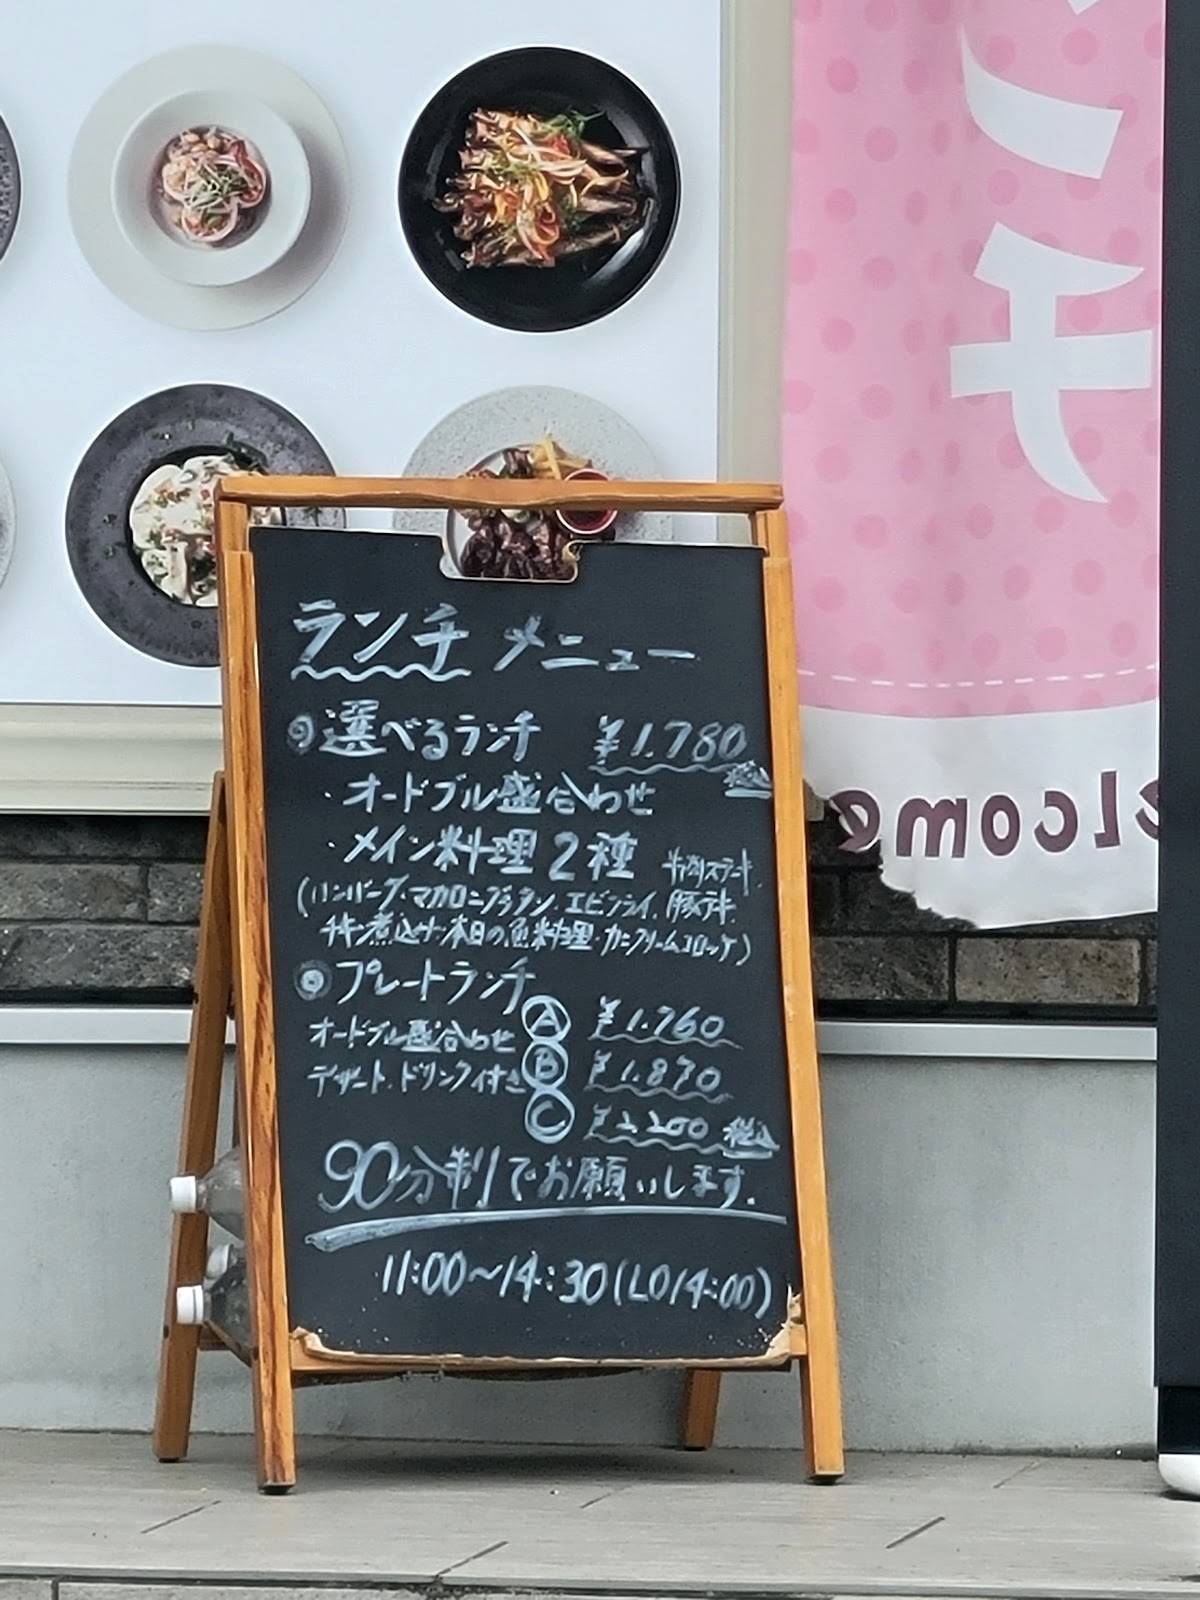 ランチ メニュー
◎選べるランチ ¥1.780
税込
・オードブル盛合わせ
・メイン料理2種 牛削ステーキ.
(ハンバーグ・マカロニグラタン.エビフライ.豚ステーキ.
チキン煮込サ・本日の魚料理・カニクリームコロッケ)
◎プレートランチ
オードブル盛合わせ Ⓐ ¥1.760
デザート.ドリンク付き Ⓑ ¥1.870
Ⓒ ¥2.200 税込
90分制でお願いします.
11:00~14:30(LO14:00)
ンチ
elcome